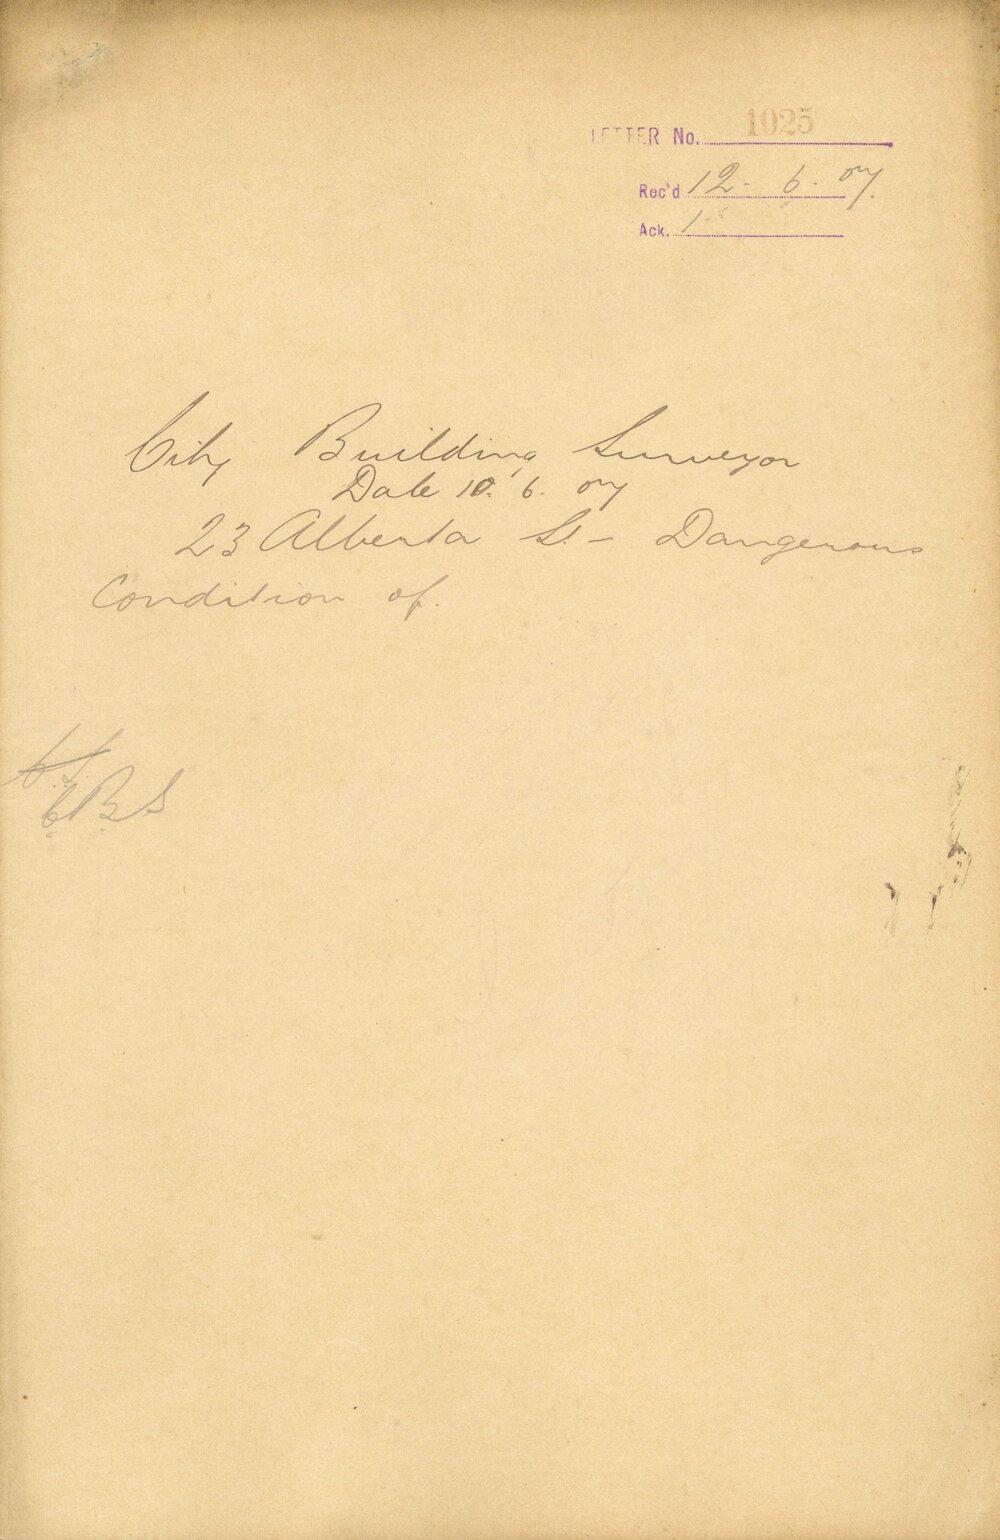 LETTER No. 1025
Rec'd 12. 6. 07.
Ack.
City Building Surveyor
Date 10. 6. 07
23 Alberta St - Dangerous
Condition of.
C.B.S